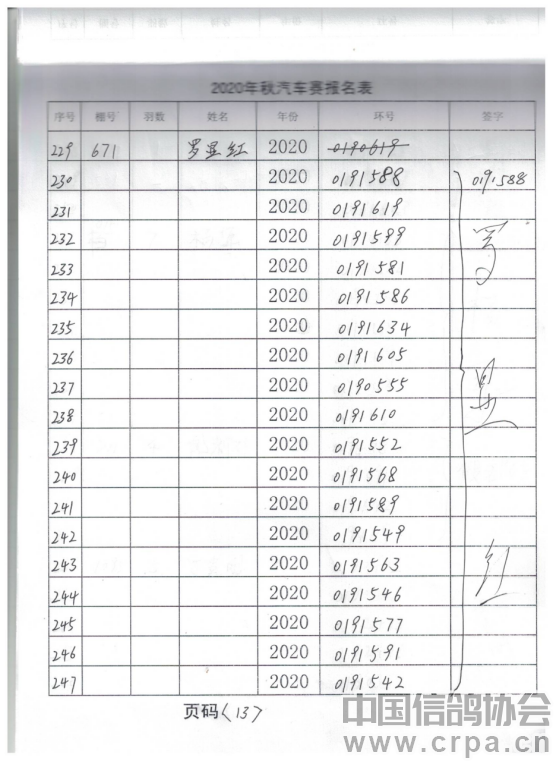 2020年秋汽车赛报名表
序号 棚号 羽数 姓名 年份 环号 签字
229 671 罗显红 2020 0190619
230 2020 0191588 0191588
231 2020 0191619
232 2020 0191599
233 2020 0191581
234 2020 0191586
235 2020 0191634
236 2020 0191605
237 2020 0190555
238 2020 0191610
239 2020 0191552
240 2020 0191568
241 2020 0191589
242 2020 0191549
243 2020 0191563
244 2020 0191546
245 2020 0191577
246 2020 0191591
247 2020 0191542
罗显红
页码〈13〉
中国信鸽协会
www.crpa.cn